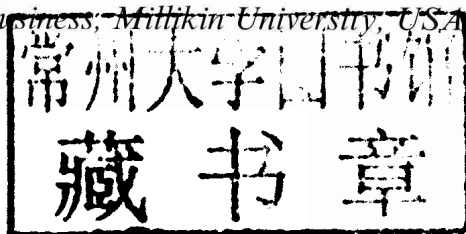 usiness, Millikin University, USA
常州大学图书馆
藏书章